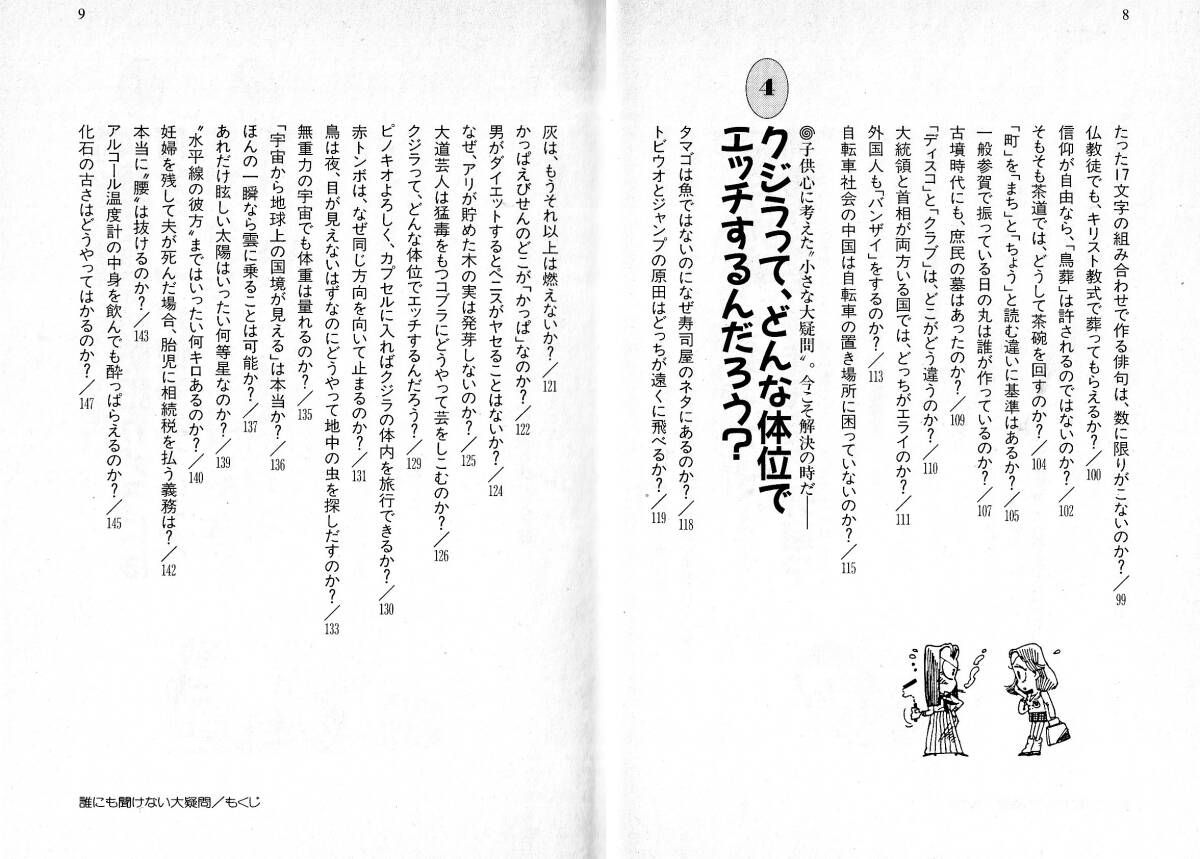 8
たった17文字の組み合わせで作る俳句は、数に限りがこないのか?/99
仏教徒でも、キリスト教式で葬ってもらえるか?/100
信仰が自由なら、「鳥葬」は許されるのではないのか?/102
そもそも茶道では、どうして茶碗を回すのか?/104
「町」を「まち」と「ちょう」と読む違いに基準はあるか?/105
一般参賀で振っている日の丸は誰が作っているのか?/107
古墳時代にも、庶民の墓はあったのか?/109
「ディスコ」と「クラブ」は、どこがどう違うのか?/110
大統領と首相が両方いる国では、どっちがエライのか?/111
外国人も「バンザイ」をするのか?/113
自転車社会の中国は自転車の置き場所に困っていないのか?/115
4
クジラって、どんな体位で
エッチするんだろう?
◎子供心に考えた〝小さな大疑問〟。今こそ解決の時だ――
タマゴは魚ではないのになぜ寿司屋のネタにあるのか?/118
トビウオとジャンプの原田はどっちが遠くに飛べるか?/119
9
灰は、もうそれ以上は燃えないか?/121
かっぱえびせんのどこが「かっぱ」なのか?/122
男がダイエットするとペニスがヤセることはないか?/124
なぜ、アリが貯めた木の実は発芽しないのか?/125
大道芸人は猛毒をもつコブラにどうやって芸をしこむのか?/126
クジラって、どんな体位でエッチするんだろう?/129
ピノキオよろしく、カプセルに入ればクジラの体内を旅行できるか?/130
赤トンボは、なぜ同じ方向を向いて止まるのか?/131
鳥は夜、目が見えないはずなのにどうやって地中の虫を探しだすのか?/133
無重力の宇宙でも体重は量れるのか?/135
「宇宙から地球上の国境が見える」は本当か?/136
ほんの一瞬なら雲に乗ることは可能か?/137
あれだけ眩しい太陽はいったい何等星なのか?/139
〝水平線の彼方〟まではいったい何キロあるのか?/140
妊婦を残して夫が死んだ場合、胎児に相続税を払う義務は?/142
本当に〝腰〟は抜けるのか?/143
アルコール温度計の中身を飲んでも酔っぱらえるのか?/145
化石の古さはどうやってはかるのか?/147
誰にも聞けない大疑問/もくじ